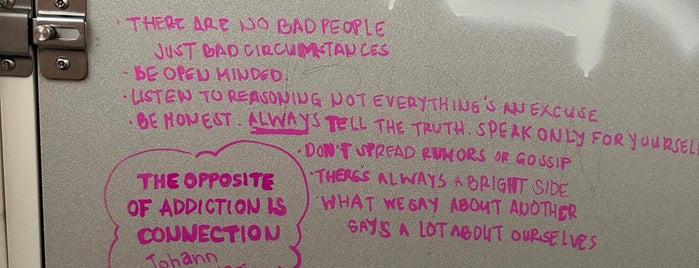 • THERE ARE NO BAD PEOPLE
JUST BAD CIRCUMSTANCES
• BE OPEN MINDED.
• LISTEN TO REASONING NOT EVERYTHING'S AN EXCUSE
• BE HONEST. ALWAYS TELL THE TRUTH. SPEAK ONLY FOR YOURSELF
• DON'T SPREAD RUMORS OR GOSSIP
• THERES ALWAYS A BRIGHT SIDE
• WHAT WE SAY ABOUT ANOTHER
SAYS A LOT ABOUT OURSELVES
THE OPPOSITE
OF ADDICTION IS
CONNECTION
Johann